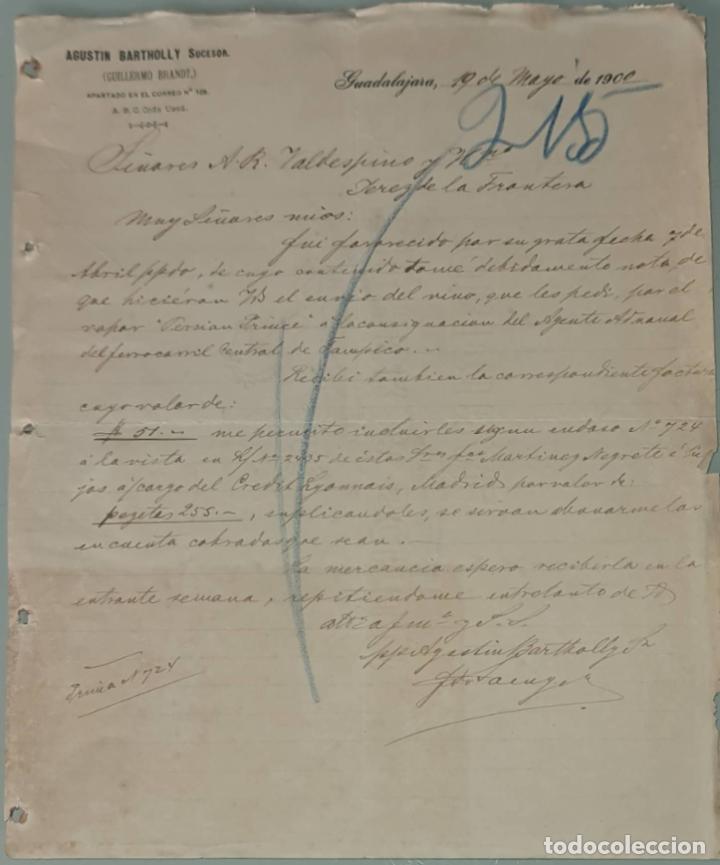 AGUSTIN BARTHOLLY SUCESOR.
(GUILLERMO BRANDT,)
APARTADO EN EL CORREO Nº
A. B. C. Code Used.
Guadalajara, 19 de Mayo de 1900
215
Señores A. R. Valdespino y
Jerez de la Frontera
Muy Señores mios:
fui favorecido por su grata fecha 7 de
Abril ppdo, de cuyo contenido tomé debidamente nota, de
que hiciéran el envio del vino, que les pedi, por el
vapor "Persian Prince" á la consignacion del Agente Aduanal
del ferrocarril Central de Tampico.—
Recibi tambien la correspondiente factura
cuyo valor de:
$ 51.— me permito incluirles segun endoso Nº 724
á la vista en Nº 2435 de éstos Sres Fco Martinez Negrete é hijos
á/cargo del Credit Lyonnais, Madrid por valor de:
pezetas 255.—, suplicandoles, se sirvan abonarmelas
en cuenta cobradas que sean.—
La mercancia espero recibirla en la
entrante semana, repitiendome entretanto de
atto afmo y S. S.
pp Agustin Bartholly Sr
Nº 724
todocoleccion
todocoleccion.net